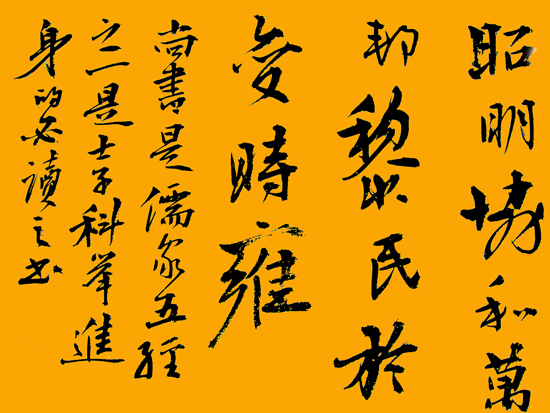 昭明協和萬
邦黎民於
变時雍
尚書是儒家五經
之一是士子科举進
身的必讀之书